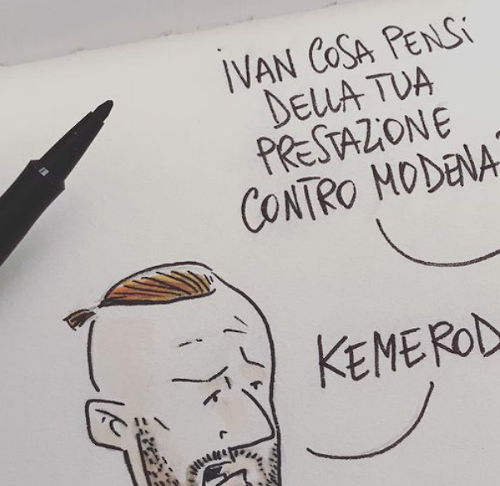 iVAN COSA PENSi
DELLA TUA
PRESTAZiONE
CONTRO MODENA?
KEMEROD